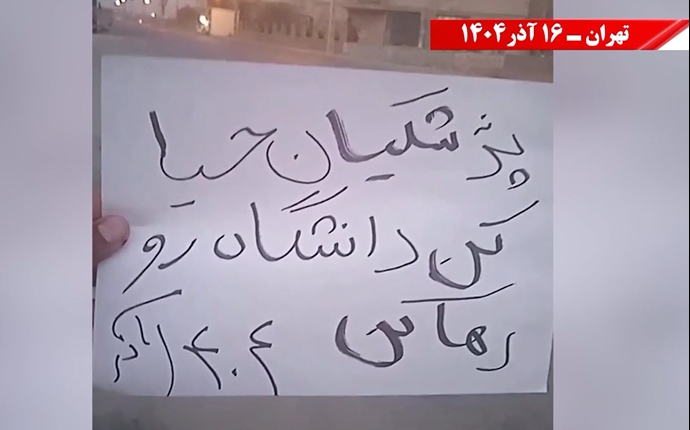 تهران ـ ۱۶ آذر ۱۴۰۴
پزشکیان حیا
کن دانشگاه رو
رها کن